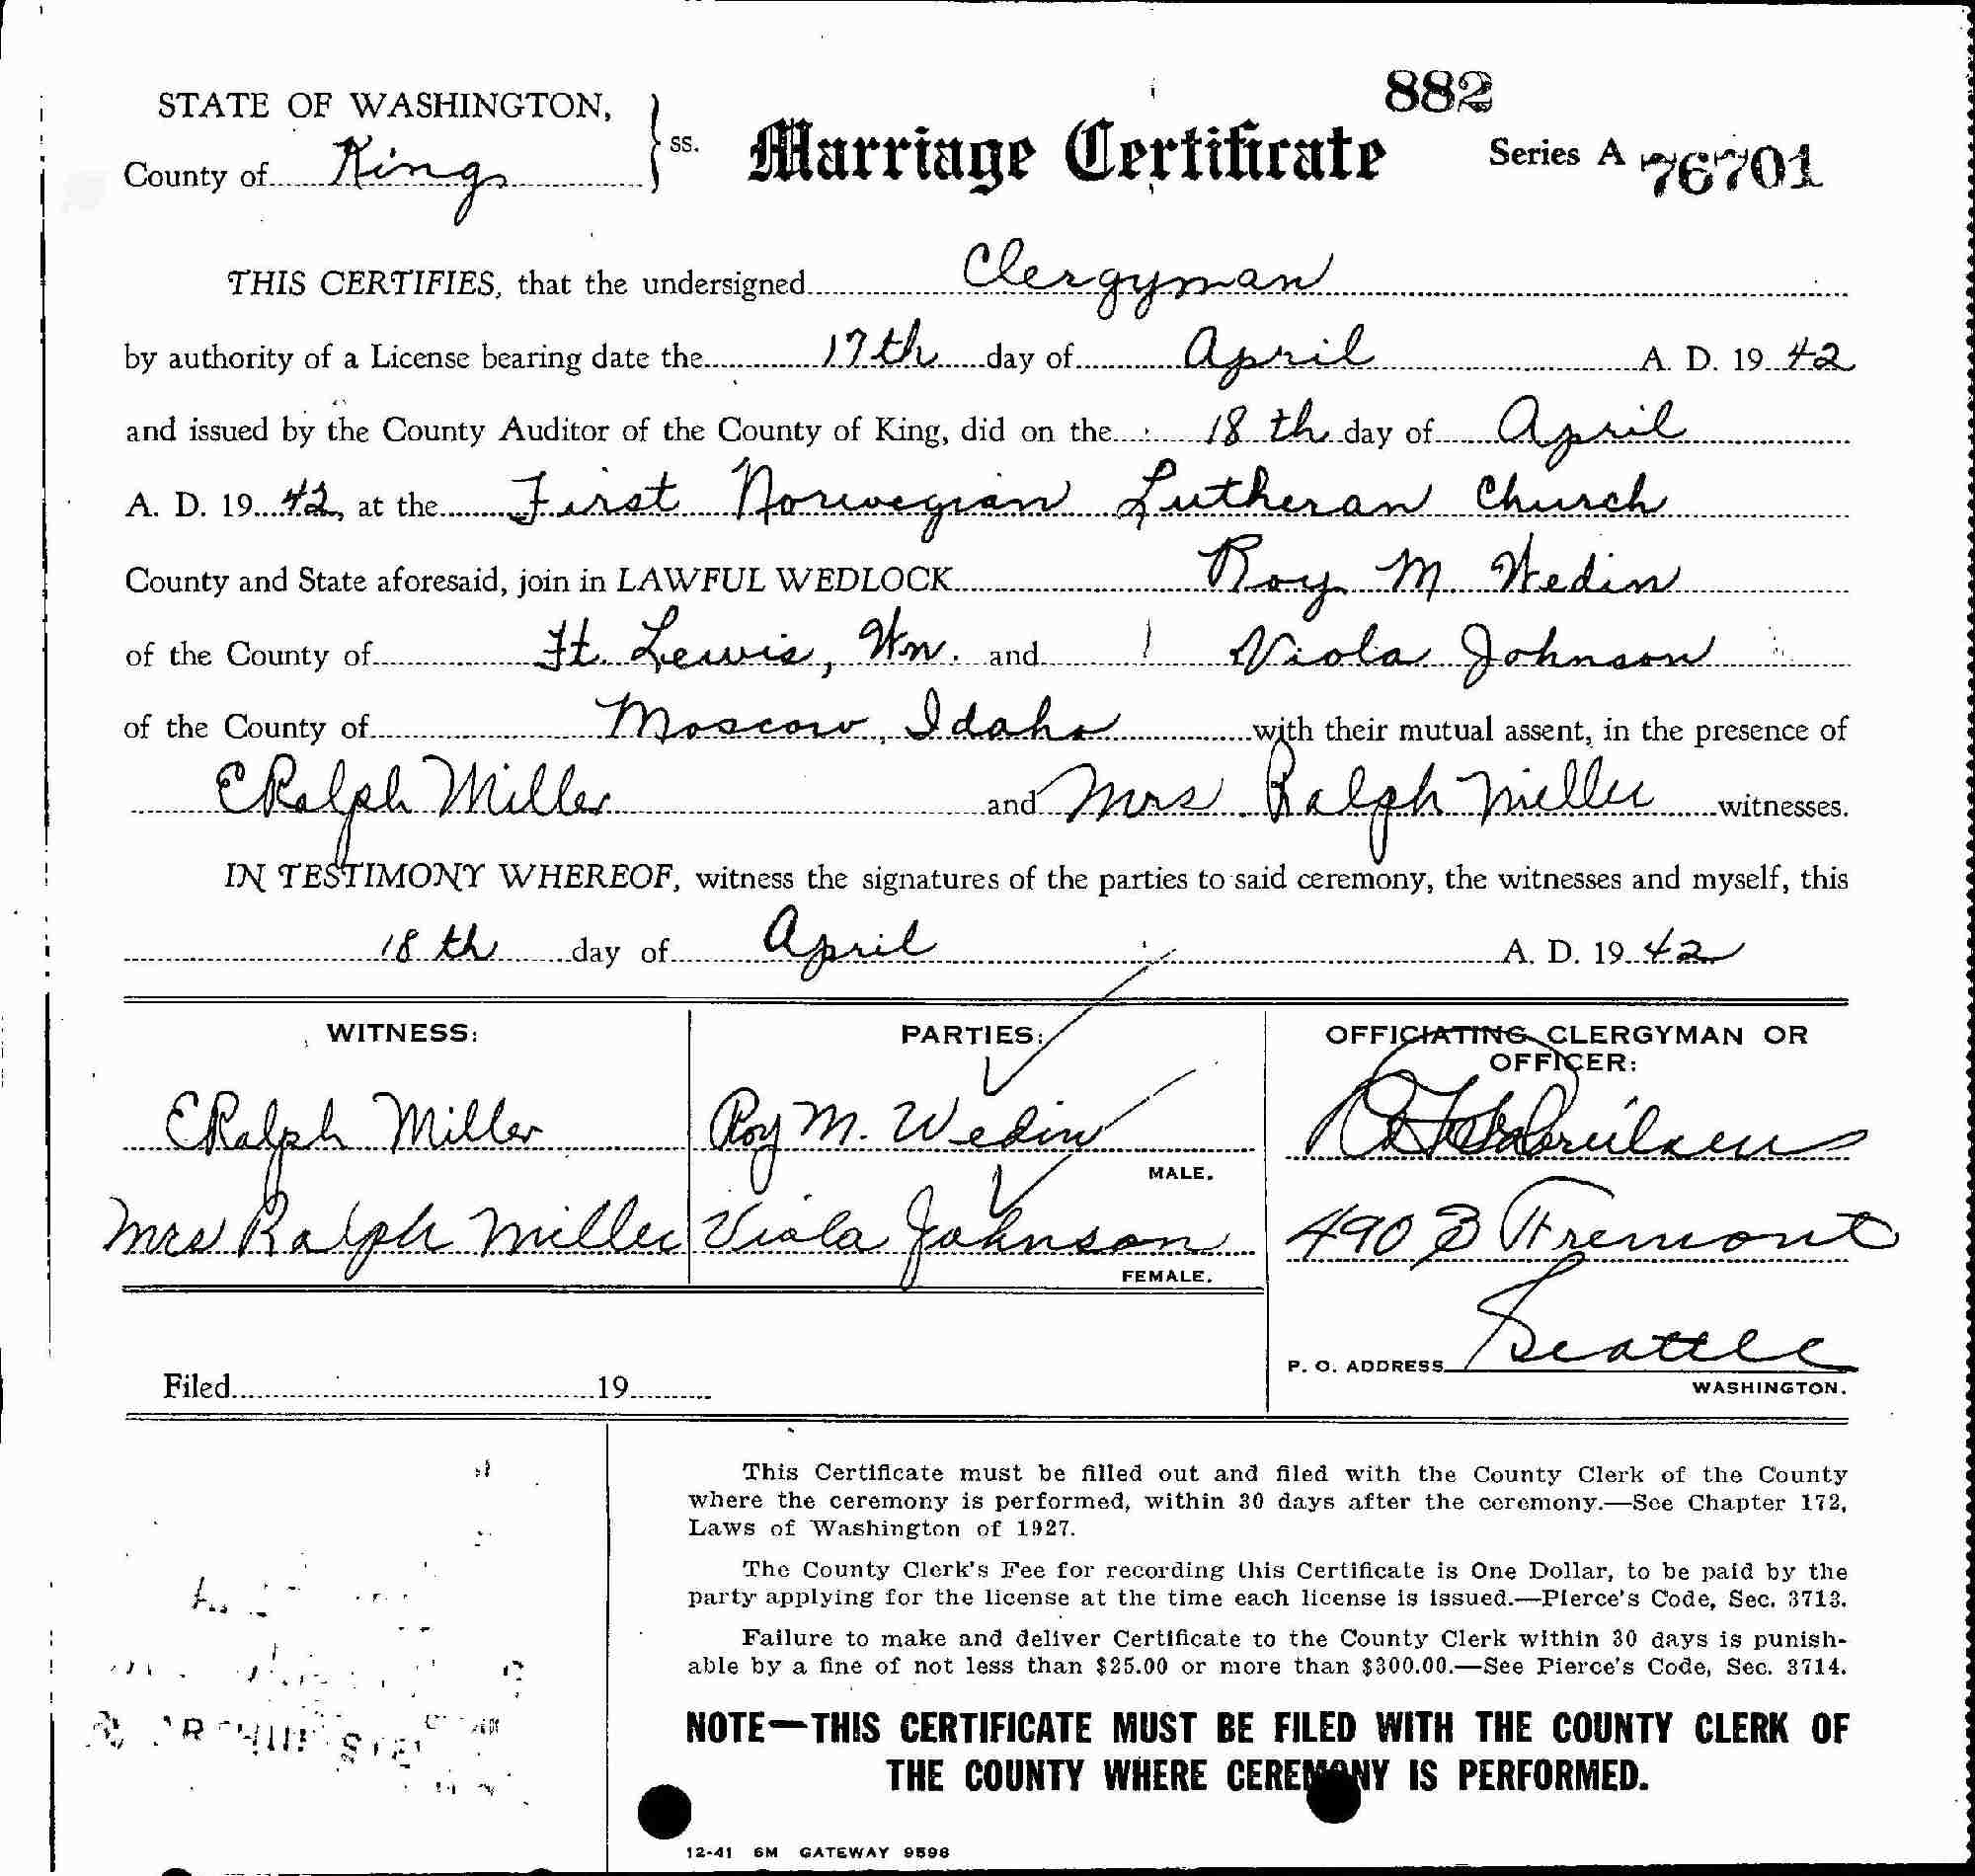 882
STATE OF WASHINGTON,
County of King ss.
Marriage Certificate
Series A 76701
THIS CERTIFIES, that the undersigned Clergyman
by authority of a License bearing date the 17th day of April A. D. 19 42
and issued by the County Auditor of the County of King, did on the 18th day of April
A. D. 19 42, at the First Norwegian Lutheran Church
County and State aforesaid, join in LAWFUL WEDLOCK Roy M. Wedin
of the County of Ft. Lewis, Wn. and Viola Johnson
of the County of Moscow, Idaho with their mutual assent, in the presence of
E Ralph Miller and Mrs. Ralph Miller witnesses.
IN TESTIMONY WHEREOF, witness the signatures of the parties to said ceremony, the witnesses and myself, this
18th day of April A. D. 19 42
WITNESS:
E Ralph Miller
Mrs Ralph Miller
PARTIES:
Roy M. Wedin
MALE.
Viola Johnson
FEMALE.
OFFICIATING CLERGYMAN OR
OFFICER:
4903 Fremont
P. O. ADDRESS Seattle
WASHINGTON.
Filed 19
This Certificate must be filled out and filed with the County Clerk of the County
where the ceremony is performed, within 30 days after the ceremony.—See Chapter 172,
Laws of Washington of 1927.
The County Clerk's Fee for recording this Certificate is One Dollar, to be paid by the
party applying for the license at the time each license is issued.—Pierce's Code, Sec. 3713.
Failure to make and deliver Certificate to the County Clerk within 30 days is punish-
able by a fine of not less than $25.00 or more than $300.00.—See Pierce's Code, Sec. 3714.
NOTE—THIS CERTIFICATE MUST BE FILED WITH THE COUNTY CLERK OF
THE COUNTY WHERE CEREMONY IS PERFORMED.
12-41 6M GATEWAY 9598